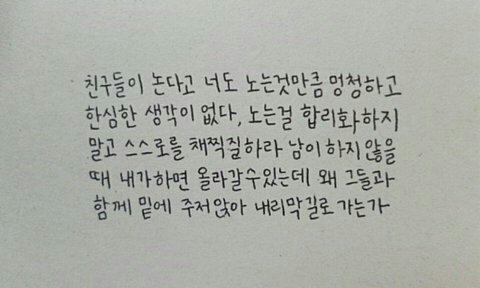 친구들이 논다고 너도 노는것만큼 멍청하고
한심한 생각이 없다, 노는걸 합리화하지
말고 스스로를 채찍질하라 남이 하지않을
때 내가하면 올라갈수있는데 왜 그들과
함께 밑에 주저앉아 내리막길로 가는가